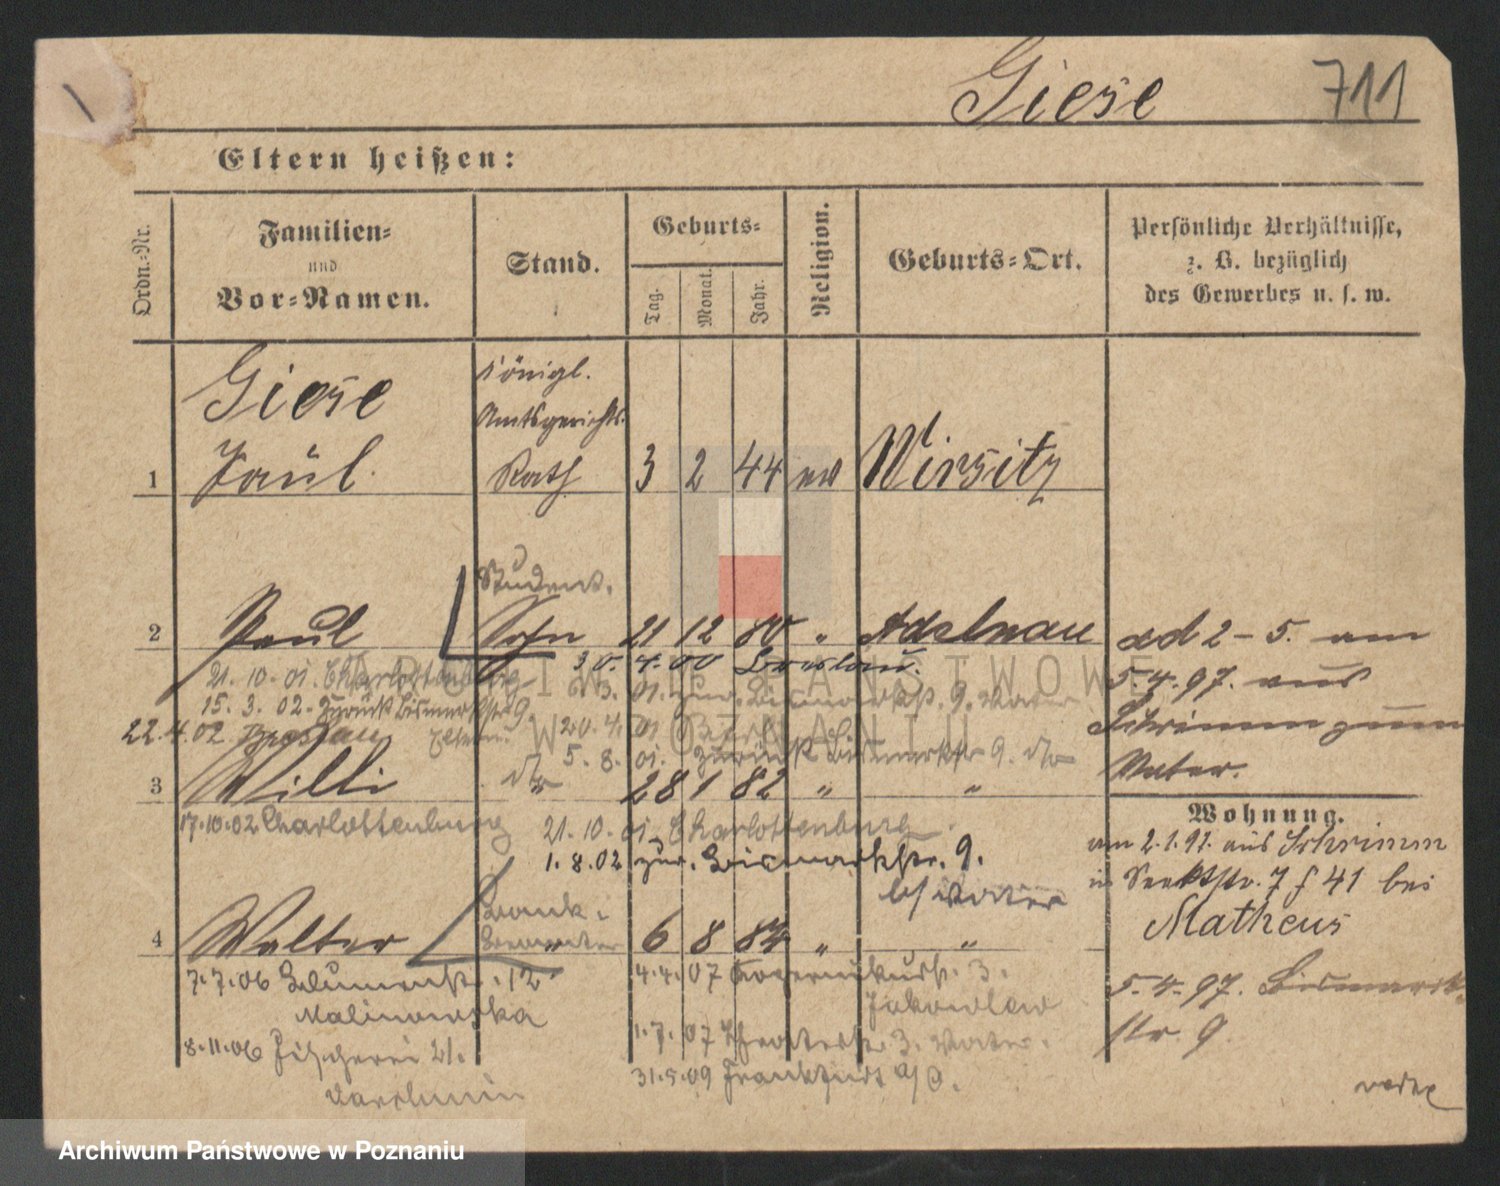 Giese 711
Eltern heißen:
Ordn.-Nr.
Familien-
und
Vor-Namen.
Stand.
Geburts-
Tag.
Monat.
Jahr.
Religion.
Geburts-Ort.
Persönliche Verhältnisse,
z. B. bezüglich
des Gewerbes u. s. w.
Giese
Königl.
Amtsgerichts-
1 Paul. Rath 3 2 44 ev Wirsitz
Student.
2 Paul Sohn 21 12 80 " Adelnau
30. 4. 00 Breslau.
21. 10. 01. Charlottenburg
6. 3. 01. zur. Bismarckstr. 9. Vater
15. 3. 02. zurück Bismarckstr 9
22. 4. 02 Breslau
20. 4. 01
5. 8. 01. zurück Bismarckstr 9.
3 Willi 28 1 82 " "
17.10.02 Charlottenburg
21. 10. 01. Charlottenburg
1. 8. 02 zur. Bismarckstr. 9.
b/ Vater
Bank-
Beamter
4 Walter " 6 8 84 " "
7. 7. 06 Blumenstr. 12
Malinowska
8. 11. 06 Fischerei 21.
4. 4. 07 3.
1. 7. 07 3. Vater.
31. 5. 09 Frankfurt a/O.
ad 2 - 5. am
5. 4. 97. aus
Schrimm zum
Vater.
Wohnung.
am 2. 1. 97. aus Schrimm
in 7 41 bei
Matheus
5. 4. 97. Bismarck-
str. 9.
ARCHIWUM PAŃSTWOWE
W POZNANIU
Archiwum Państwowe w Poznaniu